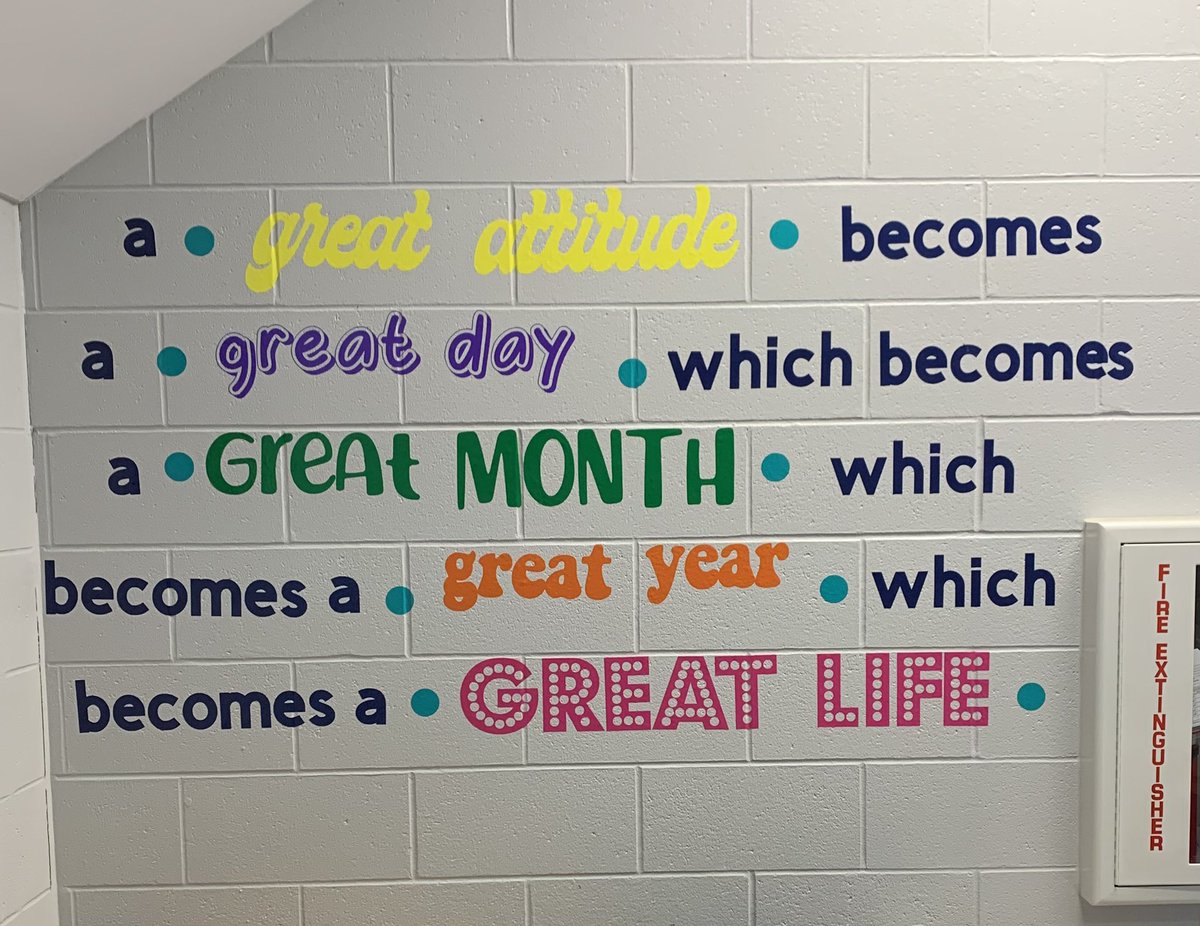 a • great attitude • becomes
a • great day • which becomes
a • Great MONTH • which
becomes a • great year • which
becomes a • GREAT LIFE •
FIRE EXTINGUISHER